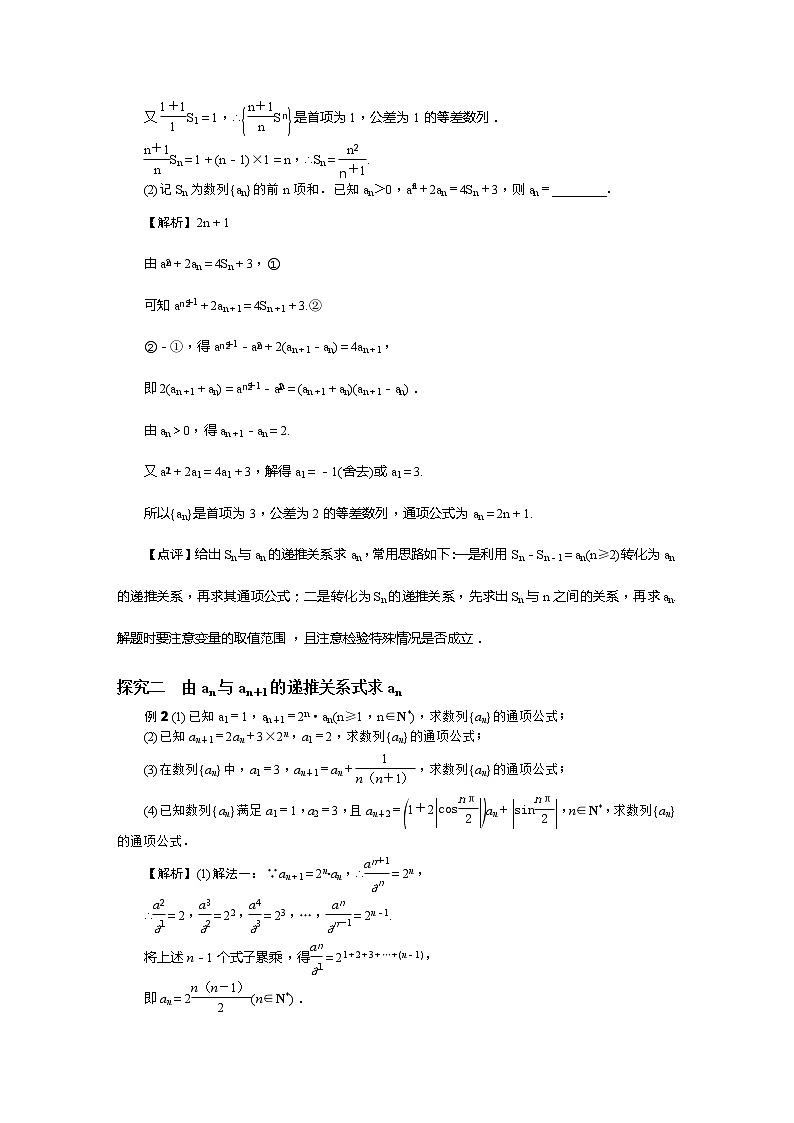 又1+1/1 S1=1,∴{n+1/n Sn}是首项为1,公差为1的等差数列.
n+1/n Sn=1+(n-1)×1=n,∴Sn=n2/n+1.
(2)记Sn为数列{an}的前n项和.已知an>0,a2n+2an=4Sn+3,则an=________.
【解析】2n+1
由a2n+2an=4Sn+3,①
可知a2n+1+2an+1=4Sn+1+3.②
②-①,得a2n+1-a2n+2(an+1-an)=4an+1,
即2(an+1+an)=a2n+1-a2n=(an+1+an)(an+1-an).
由an>0,得an+1-an=2.
又a21+2a1=4a1+3,解得a1=-1(舍去)或a1=3.
所以{an}是首项为3,公差为2的等差数列,通项公式为an=2n+1.
【点评】给出Sn与an的递推关系求an,常用思路如下:一是利用Sn-Sn-1=an(n≥2)转化为an
的递推关系,再求其通项公式;二是转化为Sn的递推关系,先求出Sn与n之间的关系,再求an.
解题时要注意变量的取值范围,且注意检验特殊情况是否成立.
探究二 由an与an+1的递推关系式求an
例2 (1)已知a1=1,an+1=2n·an(n≥1,n∈N*),求数列{an}的通项公式;
(2)已知an+1=2an+3×2n,a1=2,求数列{an}的通项公式;
(3)在数列{an}中,a1=3,an+1=an+1/n(n+1),求数列{an}的通项公式;
(4)已知数列{an}满足a1=1,a2=3,且an+2=(1+2|cos nπ/2|)an+|sin nπ/2|,n∈N*,求数列{an}
的通项公式.
【解析】(1)解法一:∵an+1=2n·an,∴an+1/an=2n,
∴a2/a1=2,a3/a2=22,a4/a3=23,…,an/an-1=2n-1.
将上述n-1个式子累乘,得an/a1=21+2+3+…+(n-1),
即an=2n(n-1)/2(n∈N*).